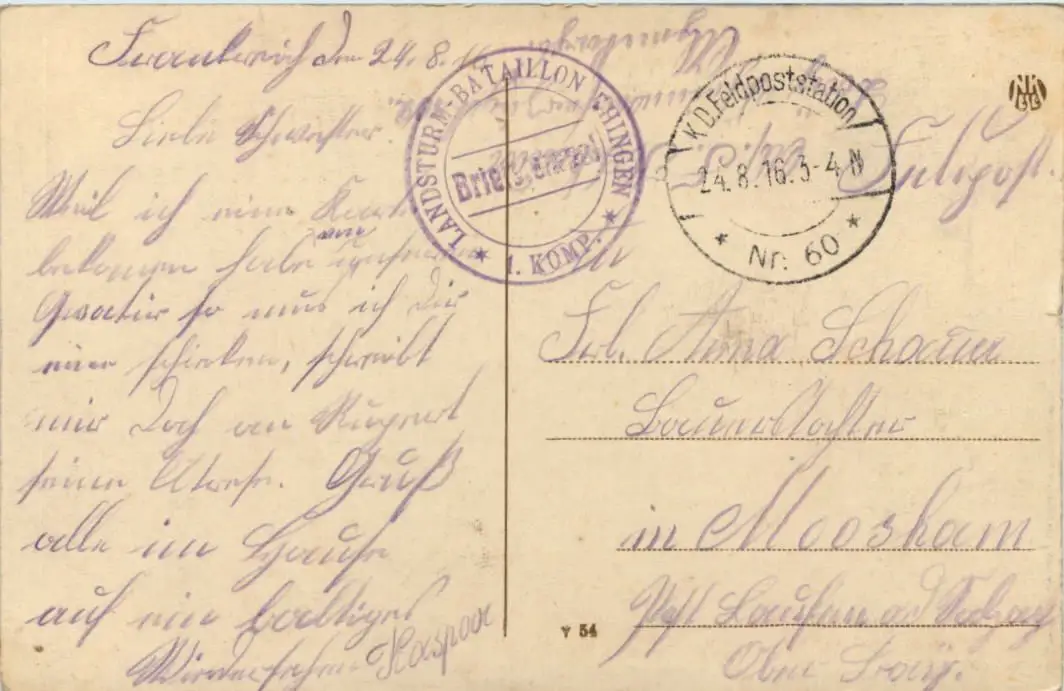 Frankreich den 24.8.16
Liebe Schwester.
Weil ich eine Karte
bekomen habe von unserem
so mus ich Dir
eine schicken, schreibt
mir doch an Rupert
seine Atrese. Gruß
alle im Hause
auf ein baltiges
Wiedersehen Kaspar
LANDSTURM-BATAILLON EHINGEN
Briefstempel
1. KOMP.
K.D. Feldpoststation
24.8.16.3-4 N
Nr. 60
Feldpost.
An
Frl. Anna Schaur
Bauerstochter
in Moosham
Post Laufen ad Salzach
Ober Bay.
Y 54